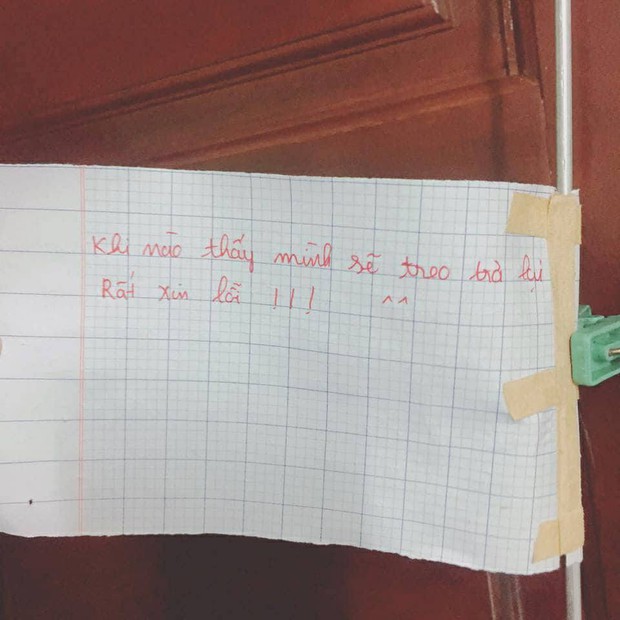 Khi nào thấy mình sẽ treo trả lại
Rất xin lỗi !!! ^^